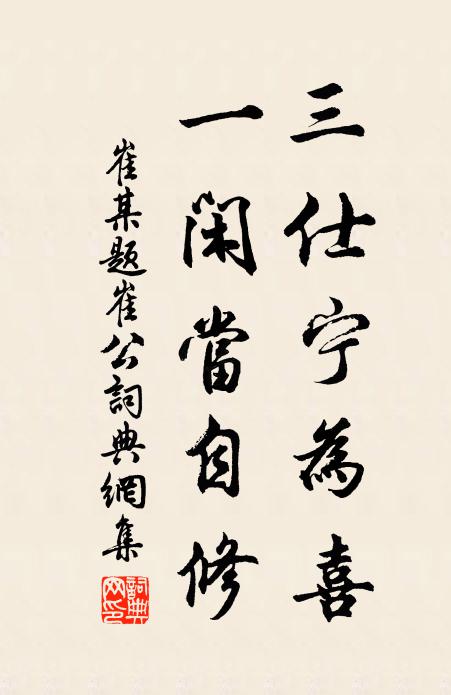 三仕宁為喜
一閑當自修
崔某題崔公詞典網集
詞典網印